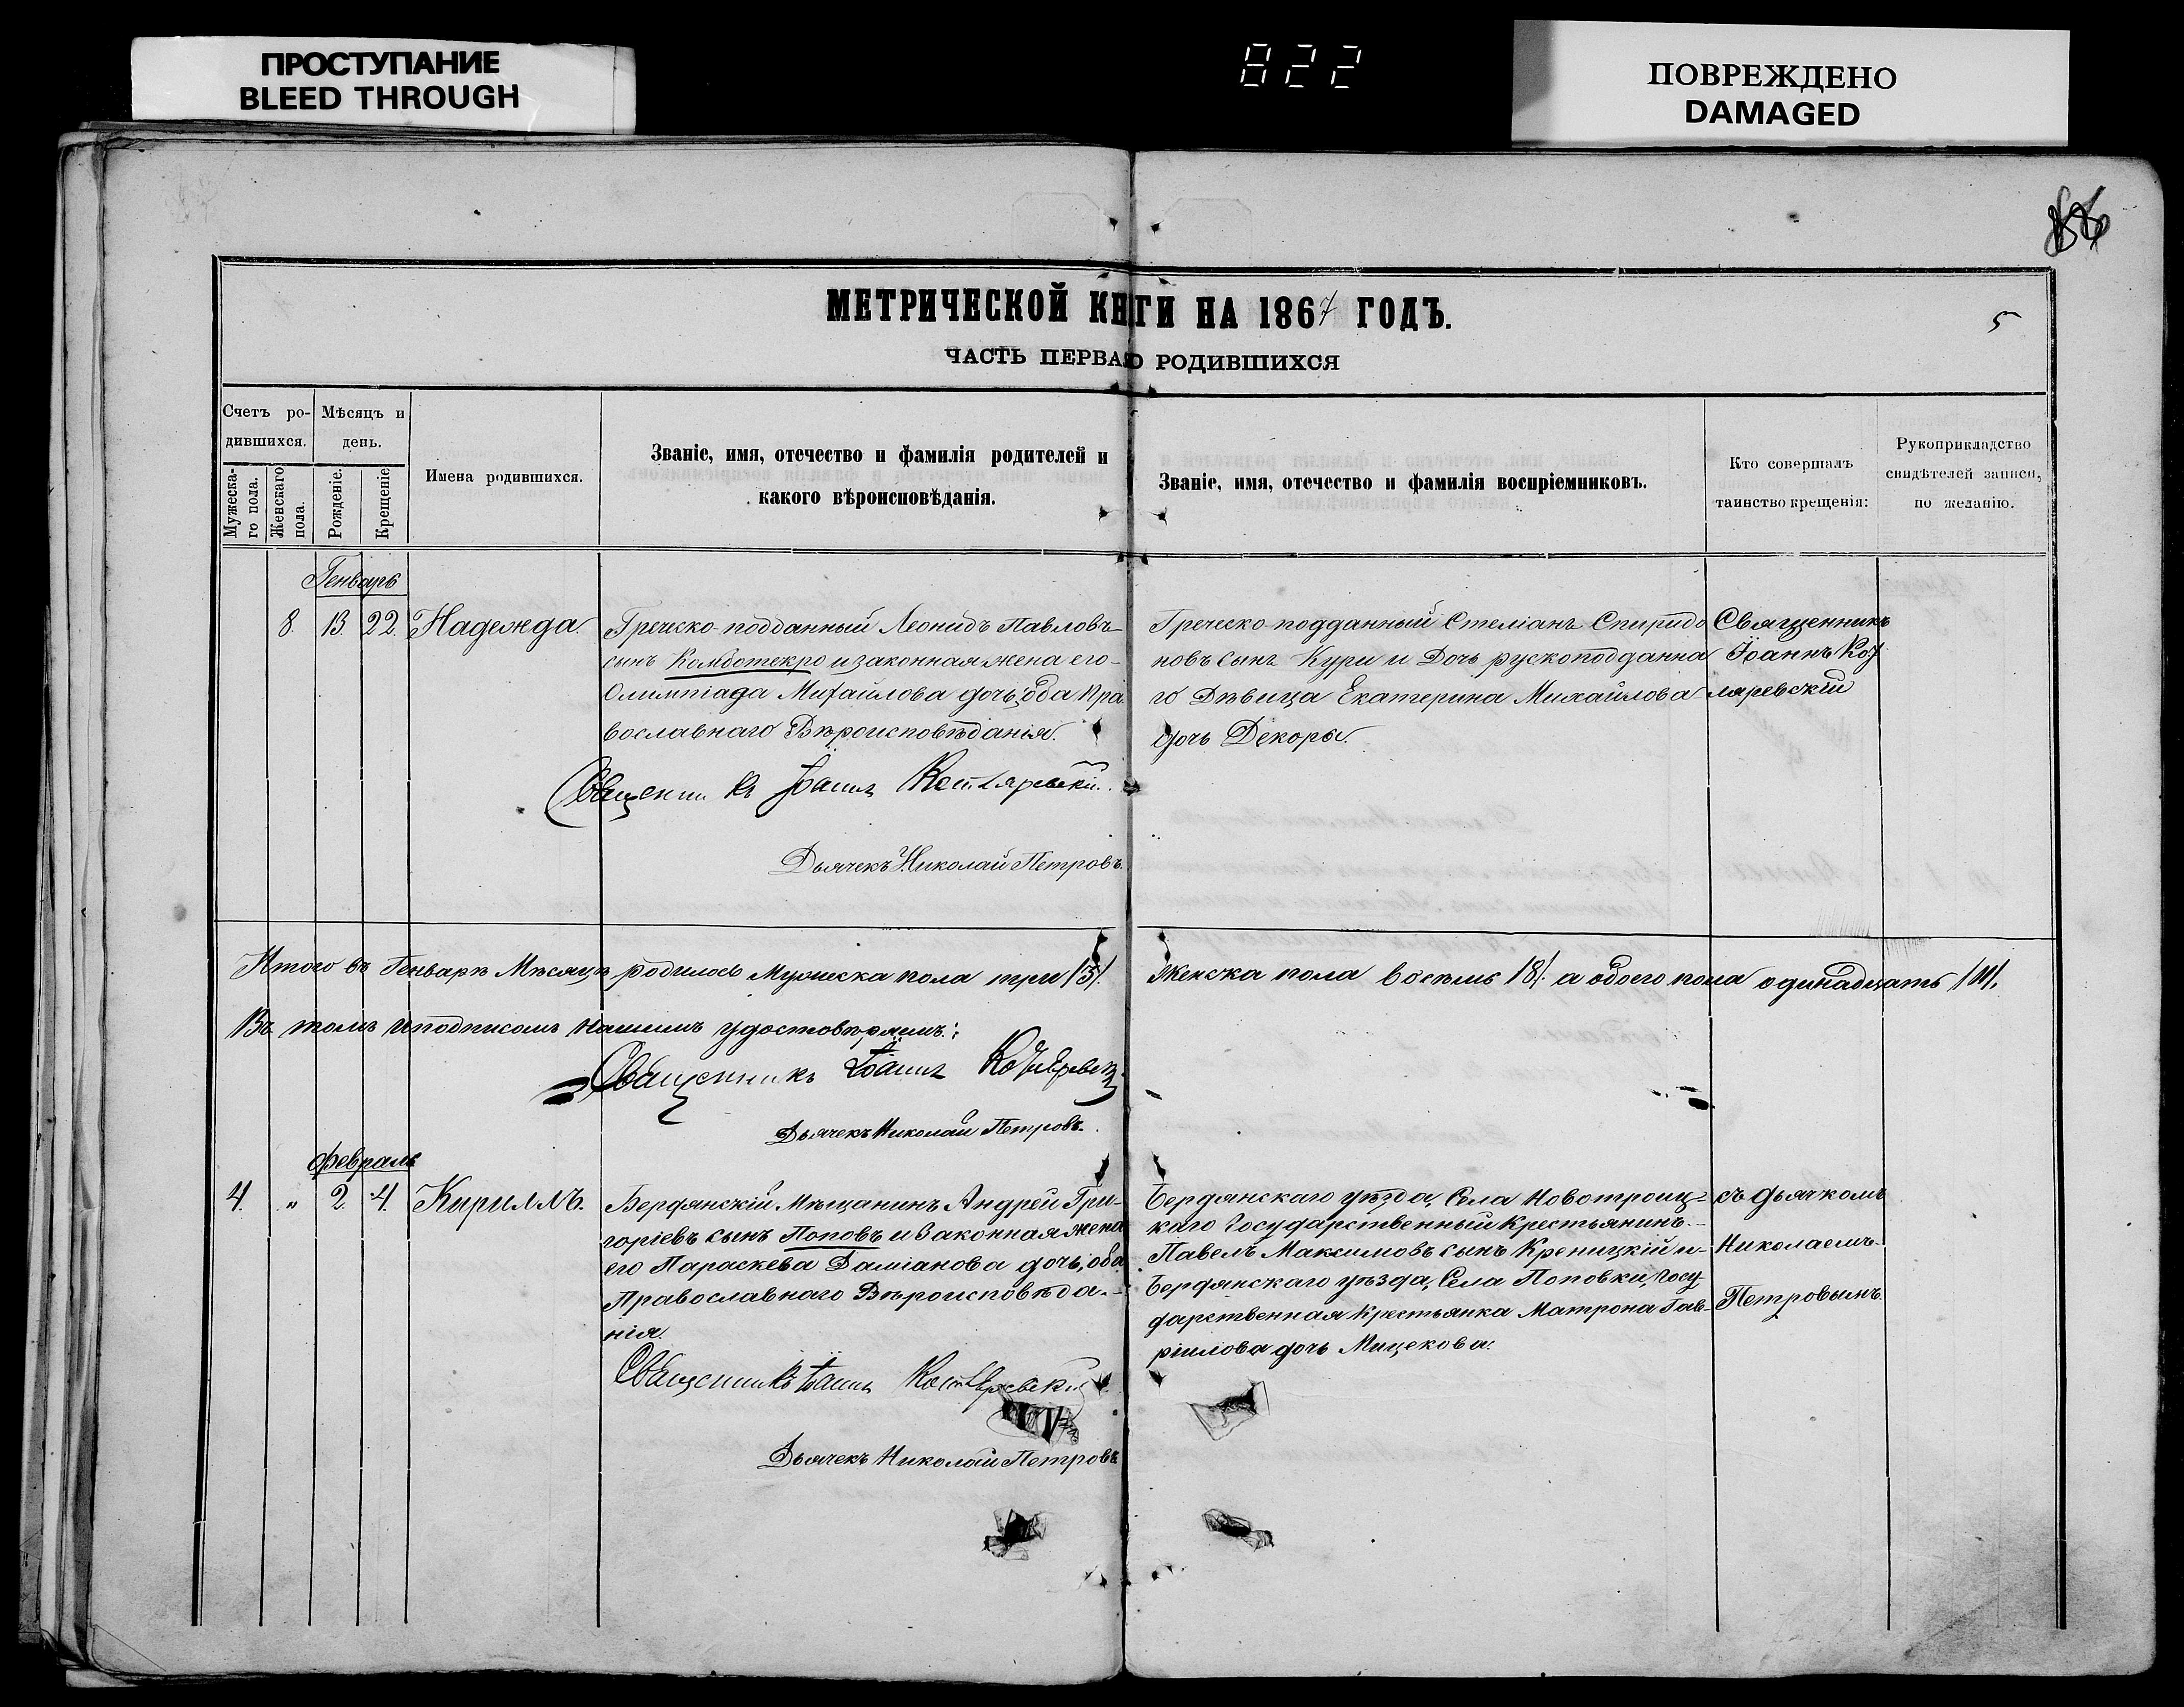 ПРОСТУПАНИЕ
BLEED THROUGH
822
ПОВРЕЖДЕНО
DAMAGED
МЕТРИЧЕСКОЙ КНГИ НА 1867 ГОДЪ.
5
ЧАСТЬ ПЕРВАЮ РОДИВШИХСЯ
Счетъ ро-
дившихся.
Мужеска-
го пола.
Женскаго
пола.
Мѣсяцъ и
день.
Рожденіе.
Крещеніе
Имена родившихся.
Званіе, имя, отечество и фамилія родителей и
какого вѣроисповѣданія.
Званіе, имя, отечество и фамилія воспріемниковъ.
Кто совершалъ
таинство крещенія:
Рукоприкладство
свидѣтелей записи,
по желанію.
Генварь
8. 13. 22. Надежда.
Греческо-подданный Леонидъ Павловъ
сынъ Комботекро и законная жена его-
Олимпіада Михайлова дочь, оба Пра
вославнаго Вѣроисповѣданія.
Священникъ Іоаннъ Котляревскій.
Дьячекъ Николай Петровъ.
Греческо-подданный Стеліанъ Спиридо
новъ сынъ Кури и Дочь рускоподданна
го Дѣвица Екатерина Михайлова
дочь Декоры.
Священникъ
Іоаннъ Кот
ляревскій
Итого въ Генварѣ Мѣсяцѣ родилось Мужеска пола три /3/. Женска пола восемь /8/. а обоего пола одинадцать /11/.
Въ томъ и подписомъ нашимъ удостовѣряемъ:
Священникъ Іоаннъ Котляревскій
Дьячекъ Николай Петровъ.
Февраль
4. " 2. 4. Кириллъ.
Бердянскій Мѣщанинъ Андрей Гри-
горіевъ сынъ Поповъ и Законная жена
его Параскева Даміанова дочь, оба
Православнаго Вѣроисповѣда-
нія.
Священникъ Іоаннъ Котляревскій
Дьячекъ Николай Петровъ
Бердянскаго уѣзда, Села Новотроиц-
каго Государственный Крестьянинъ-
Павелъ Максимовъ сынъ Креницкій и-
Бердянскаго уѣзда, Села Поповки, Госу-
дарственная Крестьянка Матрона Гав-
ріилова дочь Мицекова.
съ Дьячкомъ
Николаемъ
Петровымъ.